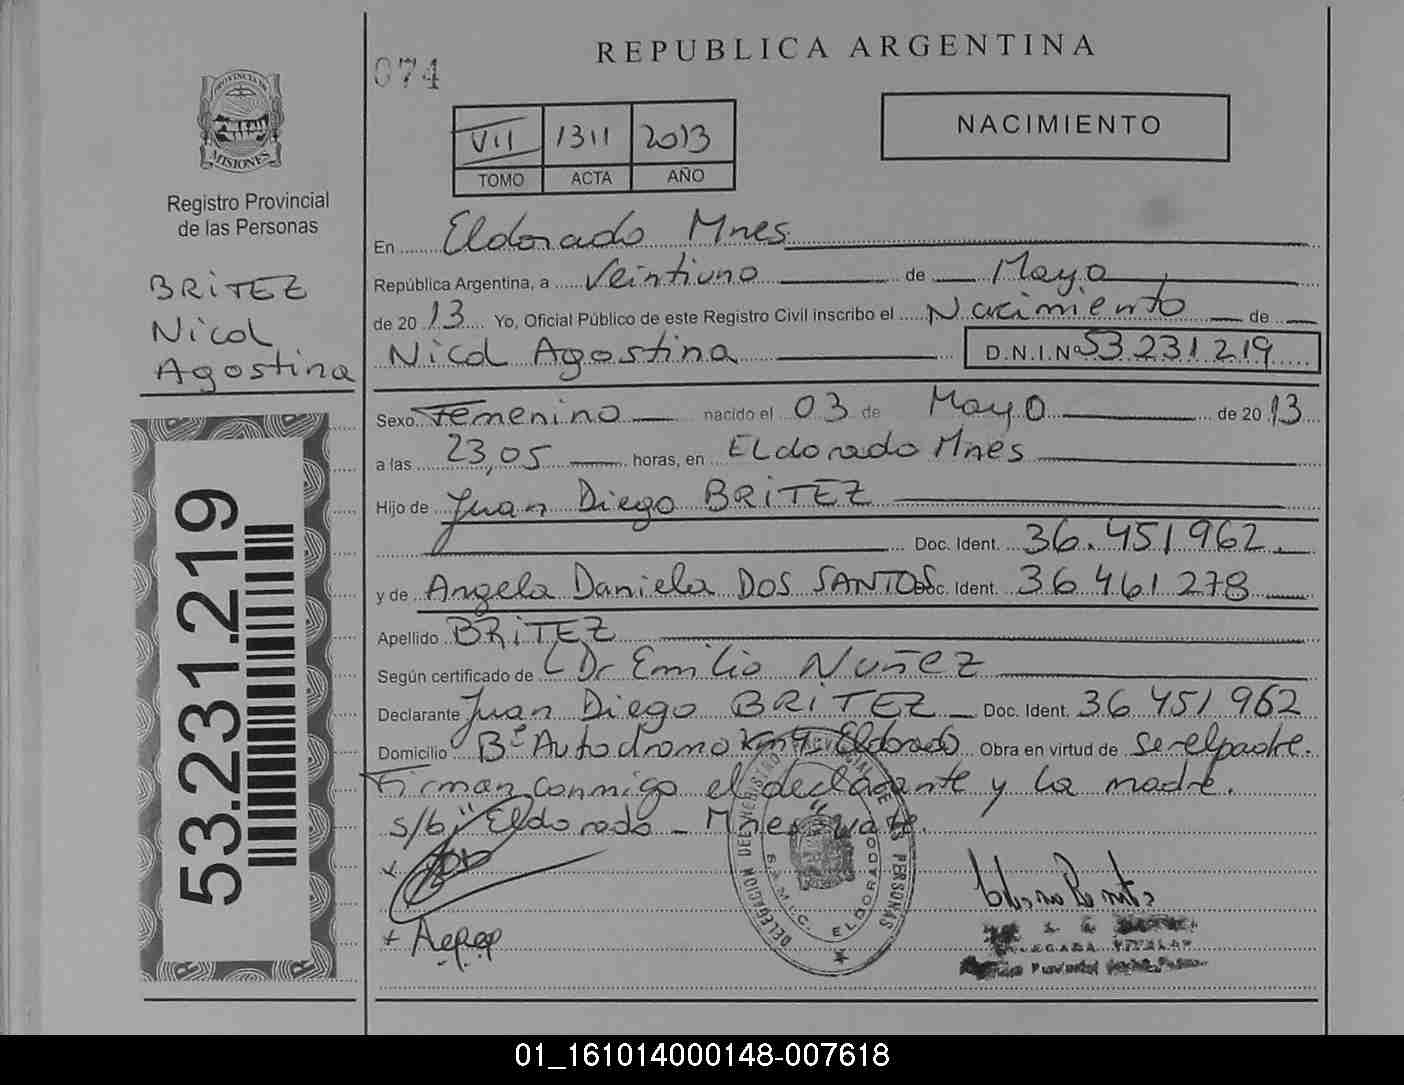 REPUBLICA ARGENTINA
074
NACIMIENTO
VII 1311 2013
TOMO ACTA AÑO
PROVINCIA DE
MISIONES
Registro Provincial
de las Personas
BRiTEZ
Nicol
Agostina
53.231.219
En Eldorado Mnes
República Argentina, a Veintiuno de Mayo
de 2013 Yo, Oficial Público de este Registro Civil inscribo el Nacimiento de
Nicol Agostina D.N.I.Nº 53.231.219
Sexo Femenino nacido el 03 de Mayo de 2013
a las 23,05 horas, en ELdorado Mnes
Hijo de Juan Diego BRiTEZ
Doc. Ident. 36.451962.
y de Angela Daniela DOS SANTOS Doc. Ident. 36461278
Apellido BRiTEZ
Según certificado de Dr Emilio NuñEZ
Declarante Juan Diego BRiTEZ Doc. Ident. 36451962
Domicilio Bº Autodromo Eldorado Obra en virtud de ser el padre.
Firman conmigo el declarante y La madre.
s/b: Eldorado - Mnes vale.
DELEGACION DEL REGISTRO PROVINCIAL DE LAS PERSONAS
ELDORADO
01_161014000148-007618